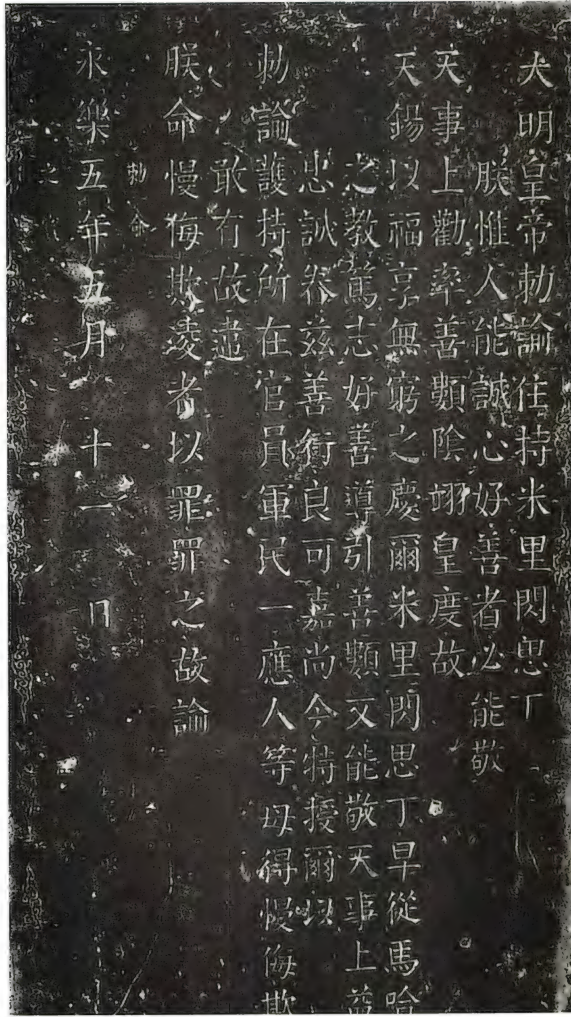 大明皇帝勅諭住持米里閃思丁
朕惟人能誠心好善者必能敬
天事上勸率善類陰翊皇度故
天錫以福享無窮之慶爾米里閃思丁早從馬哈
之教篤志好善導引善類又能敬天事上益
忠誠眷茲善行良可嘉尚今特授爾以
勅諭護持所在官員軍民一應人等毋得慢侮欺
敢有故違
朕命慢侮欺凌者以罪罪之故諭
勅命
永樂五年五月十一日
之